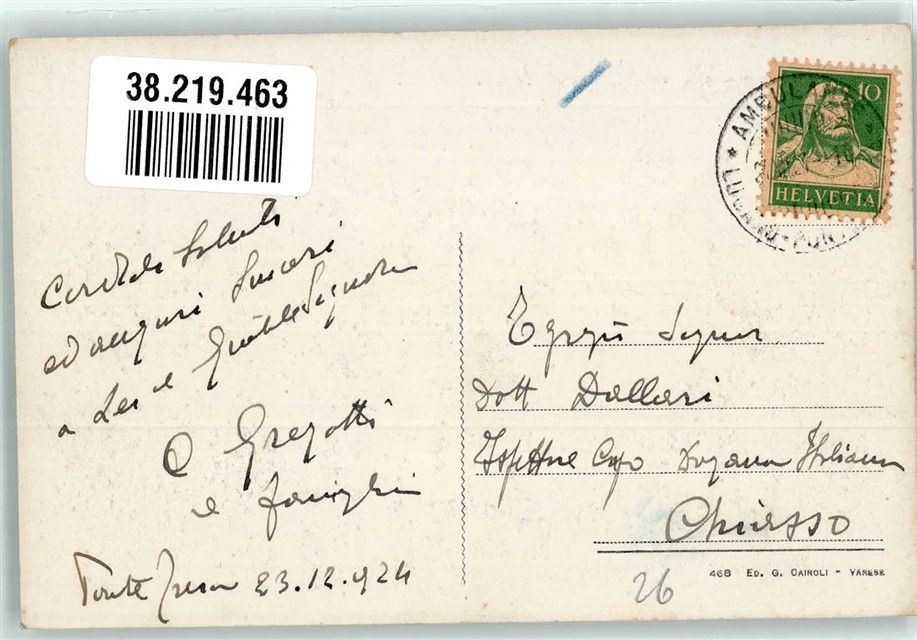 38.219.463
Cordiali Saluti
ed auguri sinceri
a Lei e Gentile Signora
C Gregotti
e famiglia
Ponte Tresa 23.12.924
10
HELVETIA
* AMBULANT
LUGANO-PONTE
Egregio Signor
Dott Dallari
Ispettore Capo Dogana Italiana
Chiasso
26
468 ED. G. CAIROLI - VARESE